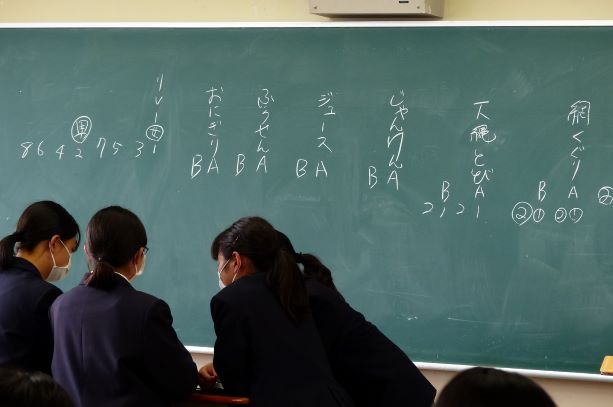 網くぐり
B A
②① ②①
大縄とび
B A
2121
じゃんけん
B A
ジュース
B A
ふうせん
B A
おにぎり
B A
リレー
男
8 6 4 2 7 5 3 1